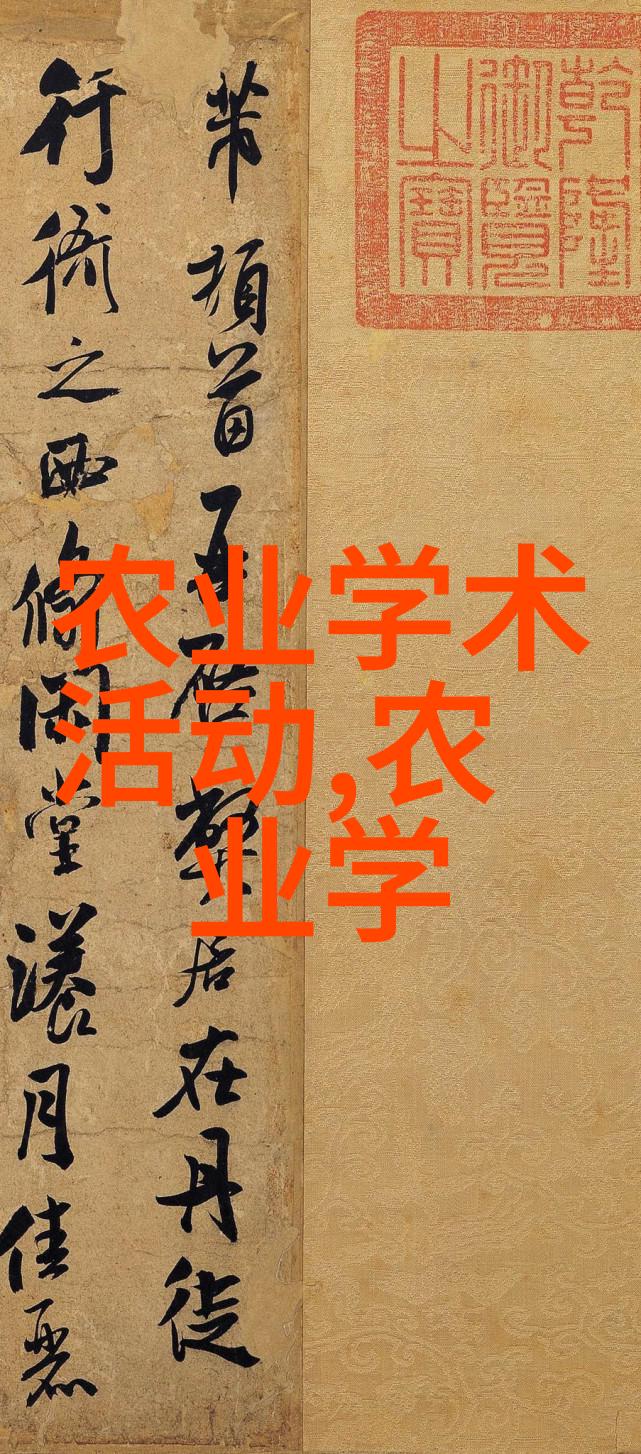 乾隆
御覽
之寶
芾頓首再啓弊居在丹徒
行衙之西翛閑堂漾月佳麗
农业学术
活动,农
业学